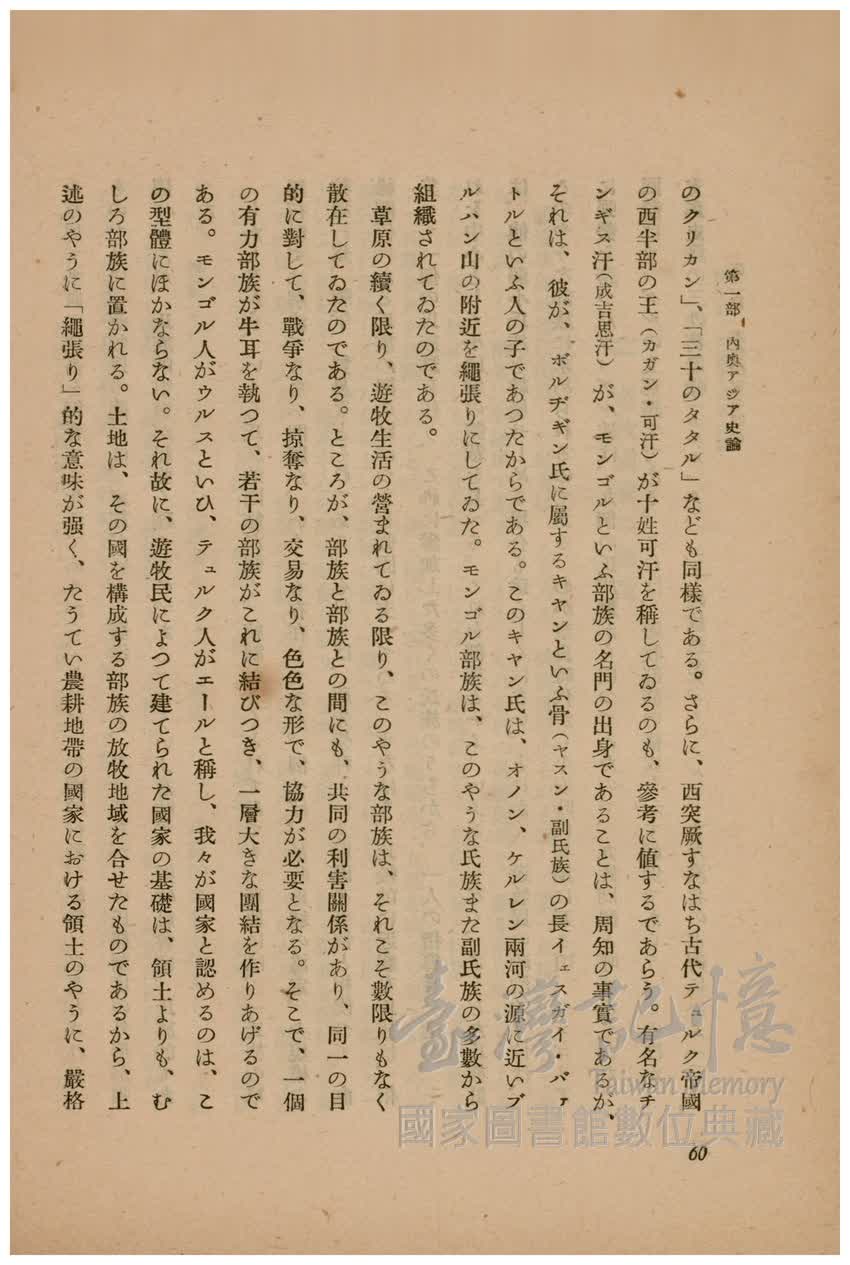 第一部　內奧アジア史論
のクリカン」、「三十のタタル」なども同樣である。さらに、西突厥すなはち古代テュルク帝國
の西半部の王（カガン・可汗）が十姓可汗を稱してゐるのも、參考に値するであらう。有名なチ
ンギス汗（成吉思汗）が、モンゴルといふ部族の名門の出身であることは、周知の事實であるが、
それは、彼が、ボルヂギン氏に屬するキヤンといふ骨（ヤスン・副氏族）の長イェスガイ・バァ
トルといふ人の子であつたからである。このキヤン氏は、オノン、ケルレン兩河の源に近いブ
ルハン山の附近を繩張りにしてゐた。モンゴル部族は、このやうな氏族また副氏族の多數から
組織されてゐたのである。
草原の續く限り、遊牧生活の營まれてゐる限り、このやうな部族は、それこそ數限りもなく
散在してゐたのである。ところが、部族と部族との間にも、共同の利害關係があり、同一の目
的に對して、戰爭なり、掠奪なり、交易なり、色色な形で、協力が必要となる。そこで、一個
の有力部族が牛耳を執つて、若干の部族がこれに結びつき、一層大きな團結を作りあげるので
ある。モンゴル人がウルスといひ、テュルク人がエールと稱し、我々が國家と認めるのは、こ
の型體にほかならない。それ故に、遊牧民によつて建てられた國家の基礎は、領土よりも、む
しろ部族に置かれる。土地は、その國を構成する部族の放牧地域を合せたものであるから、上
述のやうに「繩張り」的な意味が强く、たうてい農耕地帶の國家における領土のやうに、嚴格
60
臺灣記憶
Taiwan Memory
國家圖書館數位典藏